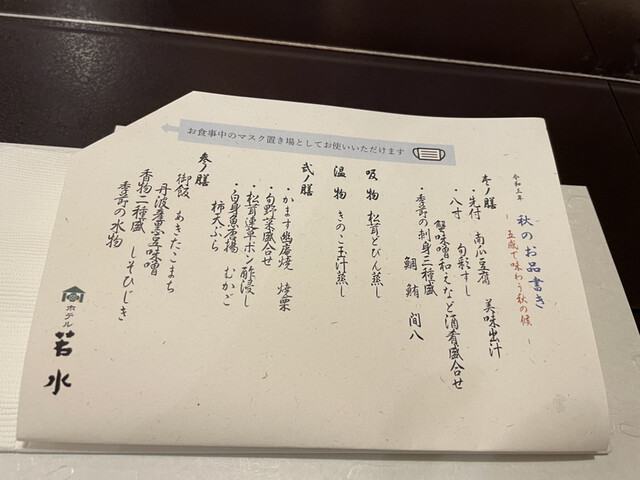 お食事中のマスク置き場としてお使いいただけます
令和三年
秋のお品書き
ー 五感で味わう秋の候 ー
壱ノ膳
・先付 南瓜豆腐 美味出汁
・八寸 旬彩すし
蟹味噌和えなど酒肴盛合せ
・季節の刺身三種盛
鯛 鮪 間八
吸物 松茸どびん蒸し
温物 きのこ玉汁蒸し
弐ノ膳
・かます幽庵焼 焼栗
・旬野菜盛合せ
・松茸蓮草ポン酢浸し
・白身魚唐揚 むかご
柿天ぷら
参ノ膳
御飯 あきたこまち
丹波産黒豆味噌
香物二種盛 しそひじき
季節の水物
ホテル
若水